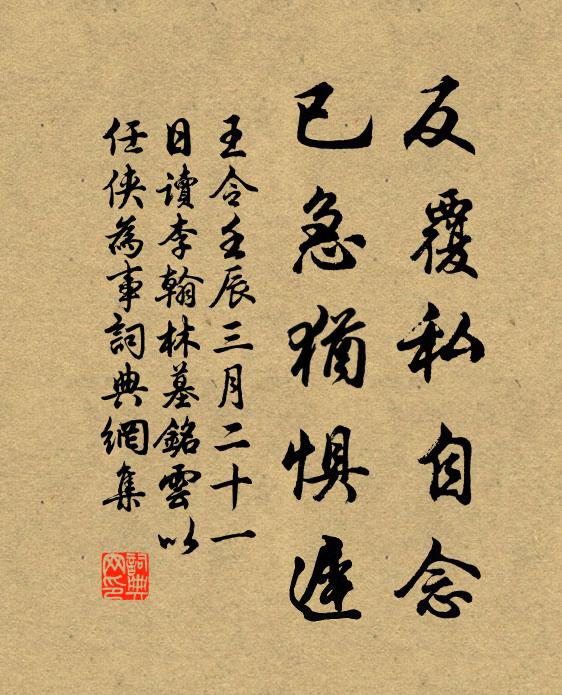 反覆私自念
已急猶惧遲
王令壬辰三月二十一
日讀李翰林墓銘雲以
任俠為事詞典網集
詞典
网印